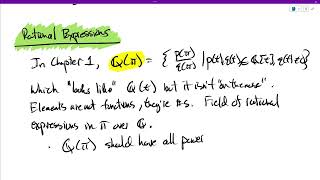 Rational Expressions
In Chapter 1, ℚ(π) = { p(π)/q(π) | p(t), q(t) ∈ ℚ[t], q(t) ≠ 0 }
Which "looks like" ℚ(t) but it isn't "on the nose".
Elements are not functions, they're #s. Field of rational
expressions in π over ℚ.
· ℚ(π) should have all power